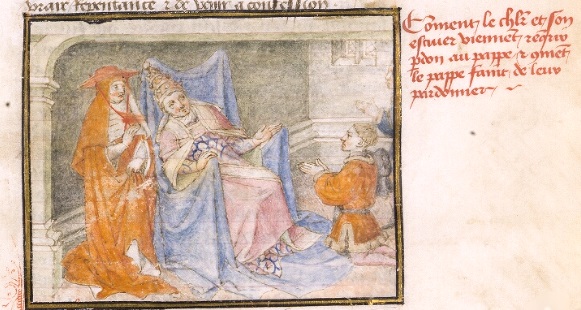 vraie repentance & de venir a confession
Coment le chlr et son
escuier viennēt requir
pdon au pappe & cōmēt
le pappe faint de leur
pardonner